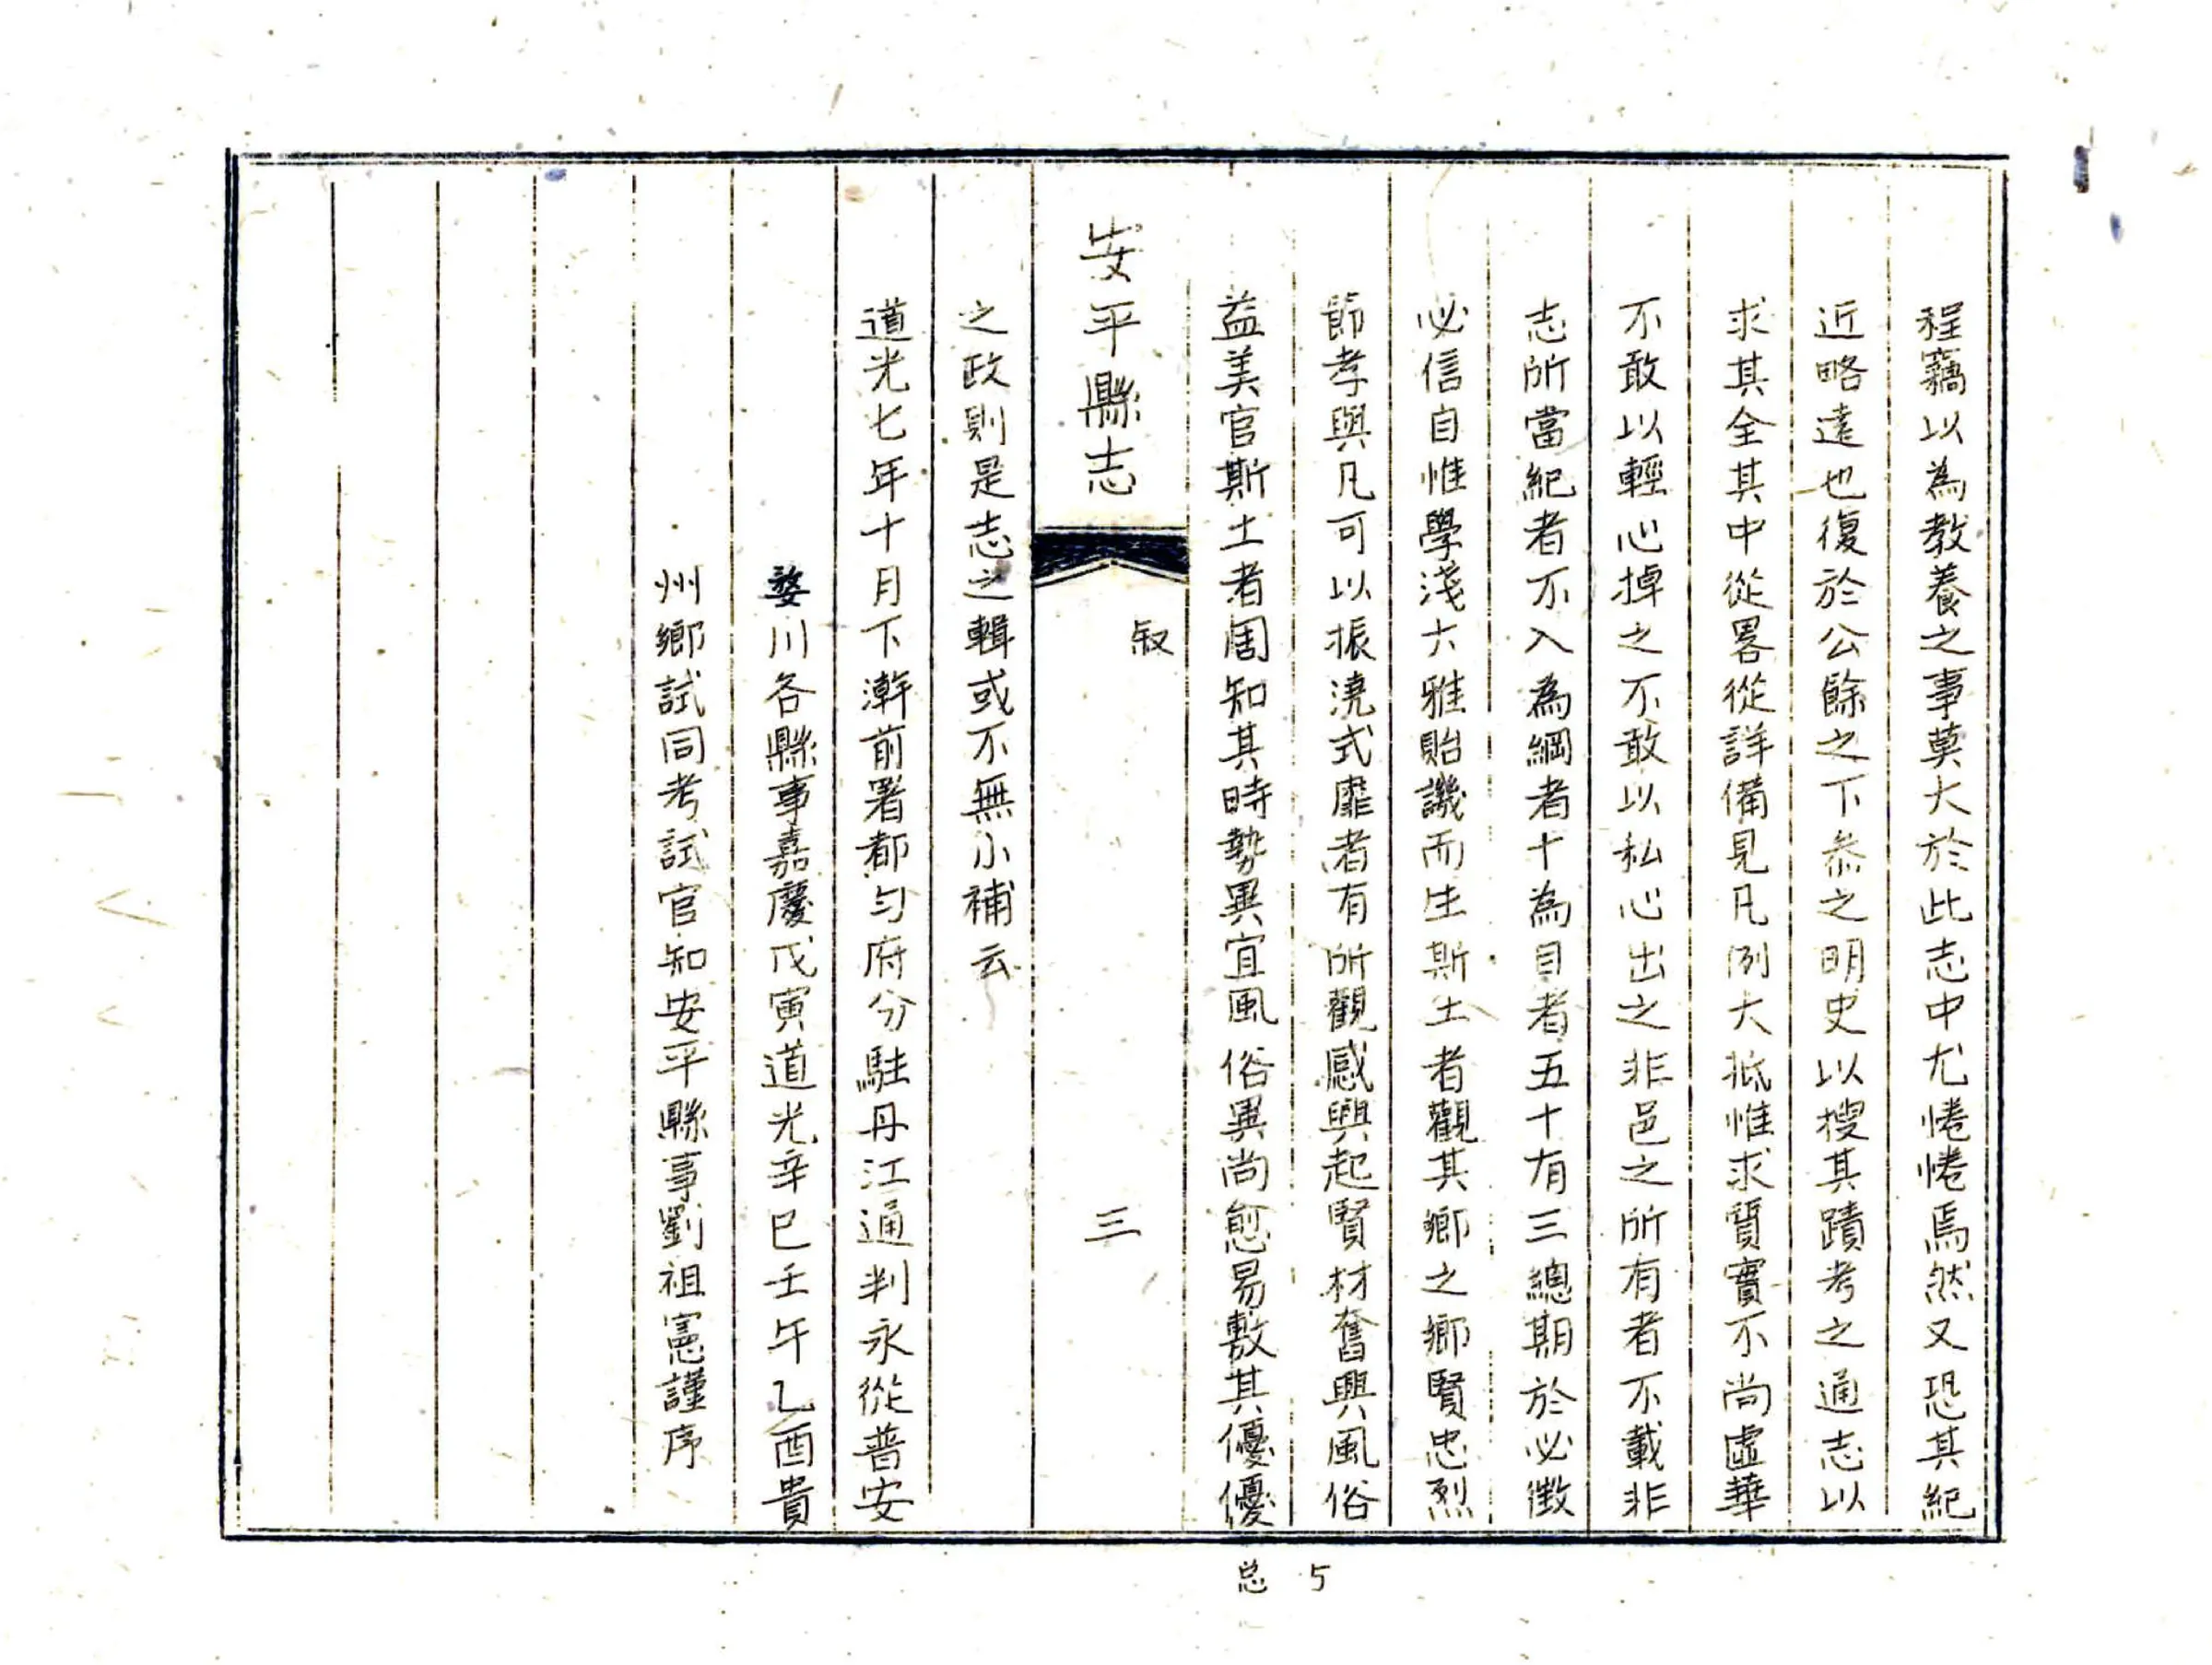 程竊以為教養之事莫大於此志中尤惓惓焉然又恐其紀
近略遠也復於公餘之下叅之明史以搜其蹟考之通志以
求其全其中從畧從詳備見凡例大抵惟求質實不尚虛華
不敢以輕心掉之不敢以私心出之非邑之所有者不載非
志所當紀者不入為綱者十為目者五十有三總期於必徵
必信自惟學淺大雅貽譏而生斯土者觀其鄉之鄉賢忠烈
節孝與凡可以振澆式靡者有所觀感興起賢材奮興風俗
益美官斯土者周知其時勢異宜風俗異尚愈易敷其優優
安平縣志
叙
三
之政則是志之輯或不無小補云
道光七年十月下澣前署都勻府分駐丹江通判永從普安
婺川各縣事嘉慶戊寅道光辛巳壬午乙酉貴
州鄉試同考試官知安平縣事劉祖憲謹序
总 5